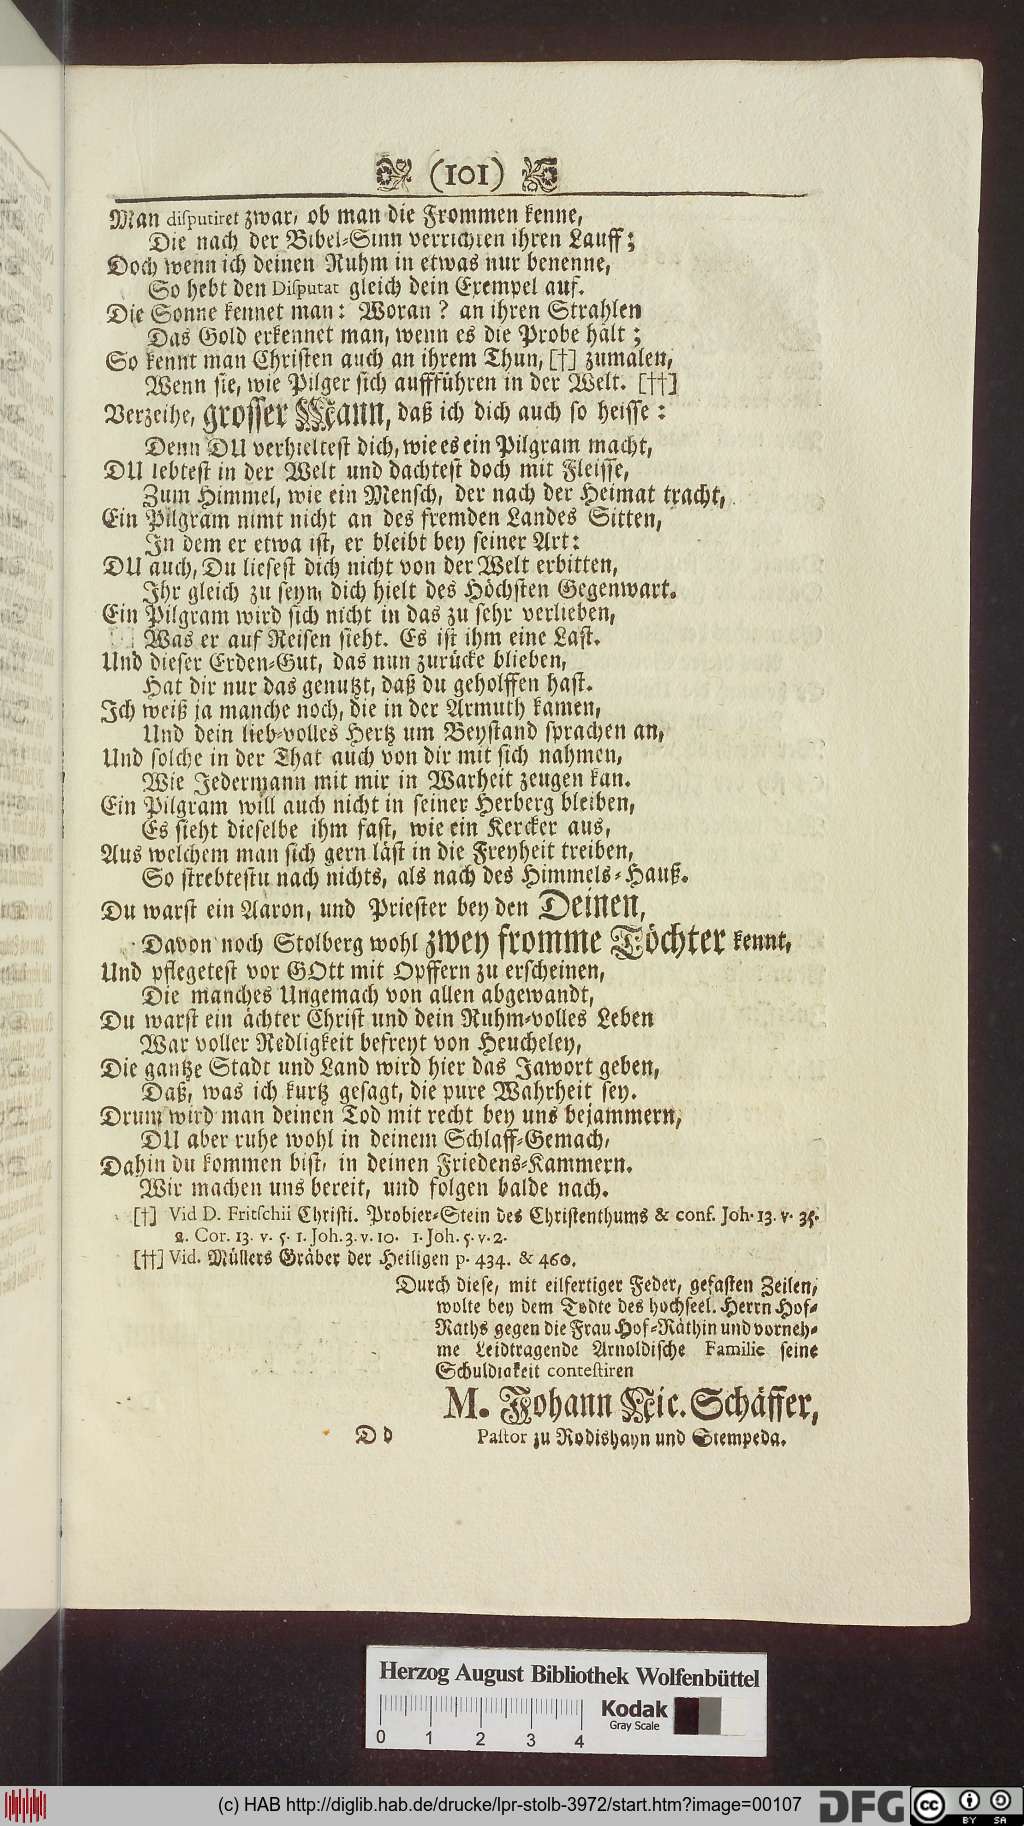 (101)
Man disputiret zwar, ob man die Frommen kenne,
Die nach der Bibel-Sinn verrichten ihren Lauff;
Doch wenn ich deinen Ruhm in etwas nur benenne,
So hebt den Disputat gleich dein Exempel auf.
Die Sonne kennet man: Woran? an ihren Strahlen
Das Gold erkennet man, wenn es die Probe hält;
So kennt man Christen auch an ihrem Thun, [†] zumalen,
Wenn sie, wie Pilger sich auffführen in der Welt. [††]
Verzeihe, grosser Mann, daß ich dich auch so heisse:
Denn DU verhieltest dich, wie es ein Pilgram macht,
DU lebtest in der Welt und dachtest doch mit Fleisse,
Zum Himmel, wie ein Mensch, der nach der Heimat tracht,
Ein Pilgram nimt nicht an des fremden Landes Sitten,
In dem er etwa ist, er bleibt bey seiner Art:
DU auch, Du liesest dich nicht von der Welt erbitten,
Ihr gleich zu seyn, dich hielt des Höchsten Gegenwart.
Ein Pilgram wird sich nicht in das zu sehr verlieben,
Was er auf Reisen sieht. Es ist ihm eine Last.
Und dieser Erden-Gut, das nun zurücke blieben,
Hat dir nur das genutzt, daß du geholffen hast.
Ich weiß ja manche noch, die in der Armuth kamen,
Und dein lieb-volles Hertz um Beystand sprachen an,
Und solche in der That auch von dir mit sich nahmen,
Wie Jedermann mit mir in Warheit zeugen kan.
Ein Pilgram will auch nicht in seiner Herberg bleiben,
Es sieht dieselbe ihm fast, wie ein Kercker aus,
Aus welchem man sich gern läst in die Freyheit treiben,
So strebtestu nach nichts, als nach des Himmels-Hauß.
Du warst ein Aaron, und Priester bey den Deinen,
Davon noch Stolberg wohl zwey fromme Töchter kennt,
Und pflegetest vor GOtt mit Opffern zu erscheinen,
Die manches Ungemach von allen abgewandt,
Du warst ein ächter Christ und dein Ruhm-volles Leben
War voller Redligkeit befreyt von Heucheley,
Die gantze Stadt und Land wird hier das Jawort geben,
Daß, was ich kurtz gesagt, die pure Wahrheit sey.
Drum wird man deinen Tod mit recht bey uns bejammern,
DU aber ruhe wohl in deinem Schlaff-Gemach,
Dahin du kommen bist, in deinen Friedens-Kammern.
Wir machen uns bereit, und folgen balde nach.
[†] Vid D. Fritschii Christi. Probier-Stein des Christenthums & conf. Joh. 13. v. 35.
2. Cor. 13. v. 5. 1. Joh. 3. v. 10. 1. Joh. 5. v. 2.
[††] Vid. Müllers Gräber der Heiligen p. 434. & 460.
Durch diese, mit eilfertiger Feder, gefasten Zeilen,
wolte bey dem Todte des hochseel. Herrn Hof-
Raths gegen die Frau Hof-Räthin und vorneh-
me Leidtragende Arnoldische Familie seine
Schuldigkeit contestiren
M. Johann Nic. Schäffer,
D d Pastor zu Rodishayn und Stempeda.
Herzog August Bibliothek Wolfenbüttel
Kodak
Gray Scale
0 1 2 3 4
(c) HAB http://diglib.hab.de/drucke/lpr-stolb-3972/start.htm?image=00107
DFG
cc BY SA